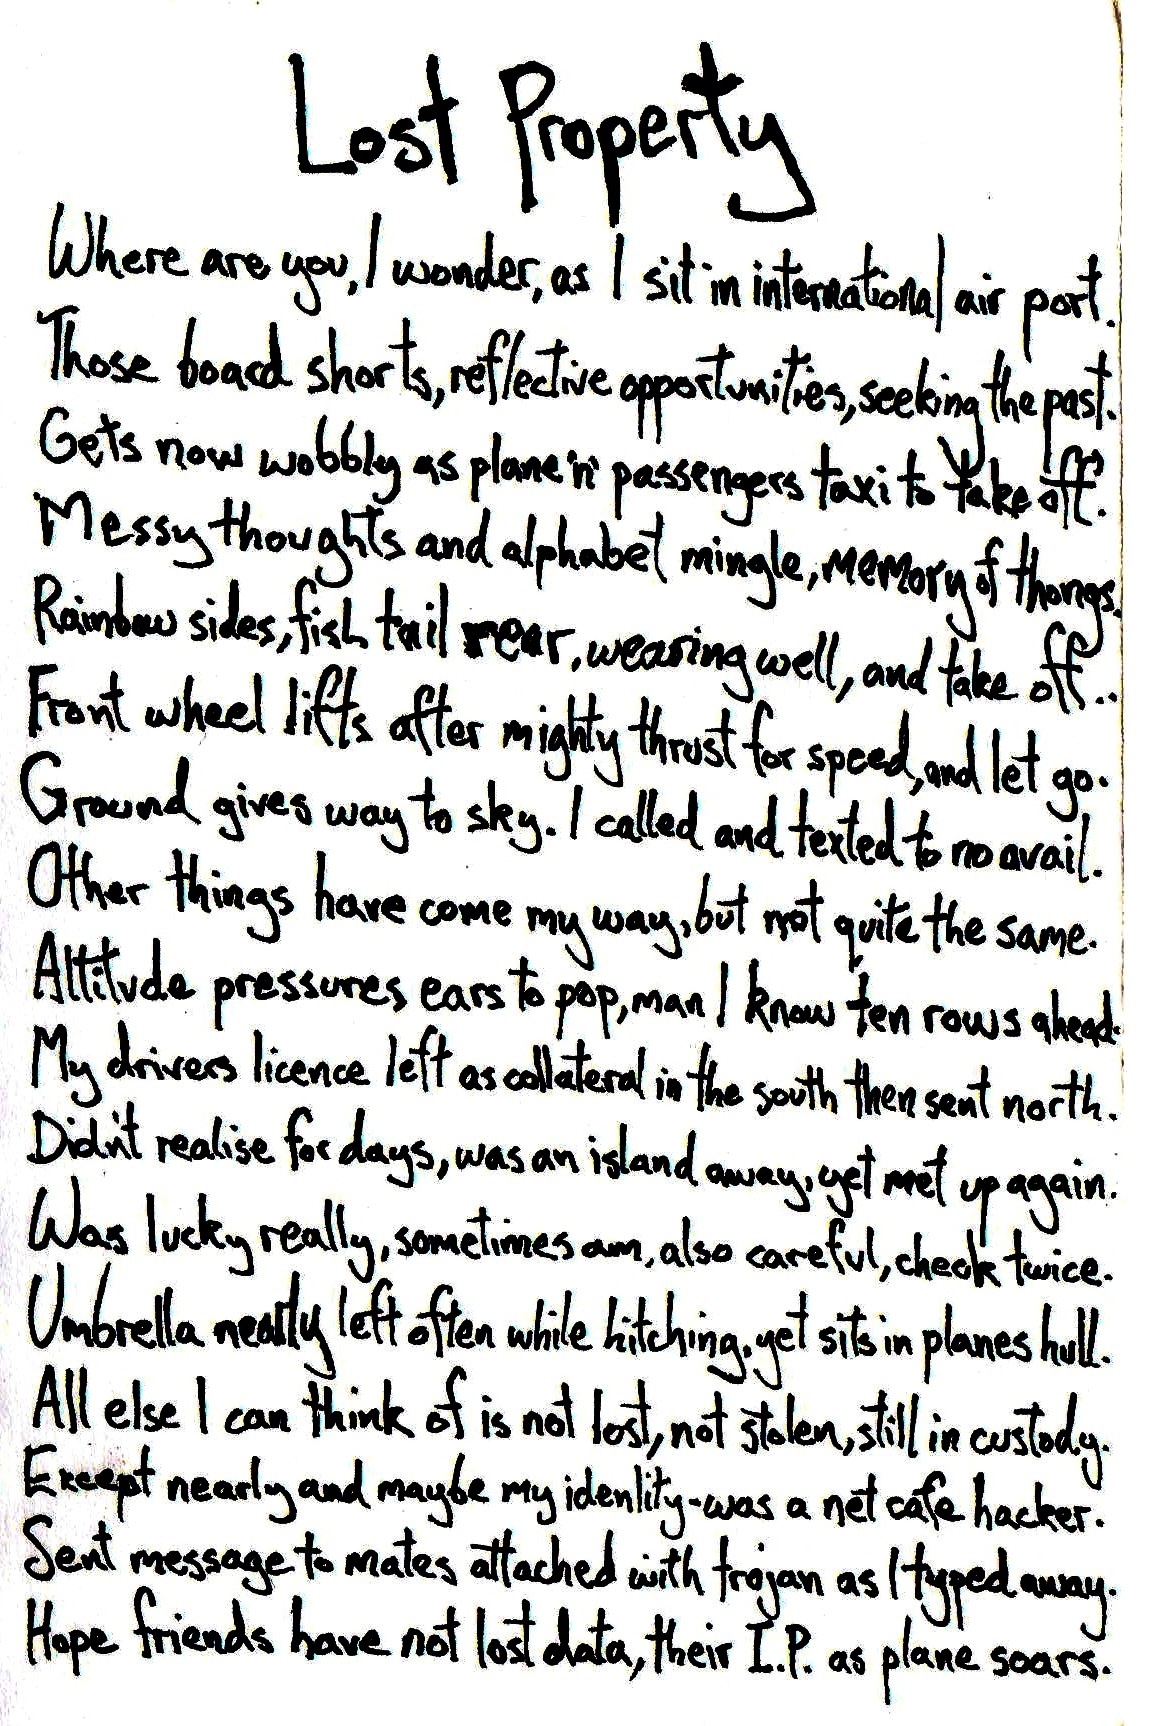 Lost Property
Where are you, I wonder, as I sit in international air port.
Those board shorts, reflective opportunities, seeking the past.
Gets now wobbly as plane 'n' passengers taxi to take off.
Messy thoughts and alphabet mingle, memory of thongs.
Rainbow sides, fish tail rear, wearing well, and take off..
Front wheel lifts after mighty thrust for speed, and let go.
Ground gives way to sky. I called and texted to no avail.
Other things have come my way, but not quite the same.
Altitude pressures ears to pop, man I know ten rows ahead.
My drivers licence left as collateral in the south then sent north.
Didn't realise for days, was an island away, yet met up again.
Was lucky really, sometimes am, also careful, check twice.
Umbrella nearly left often while hitching, yet sits in planes hull.
All else I can think of is not lost, not stolen, still in custody.
Except nearly and maybe my identity - was a net cafe hacker.
Sent message to mates attached with trojan as I typed away.
Hope friends have not lost data, their I.P. as plane soars.